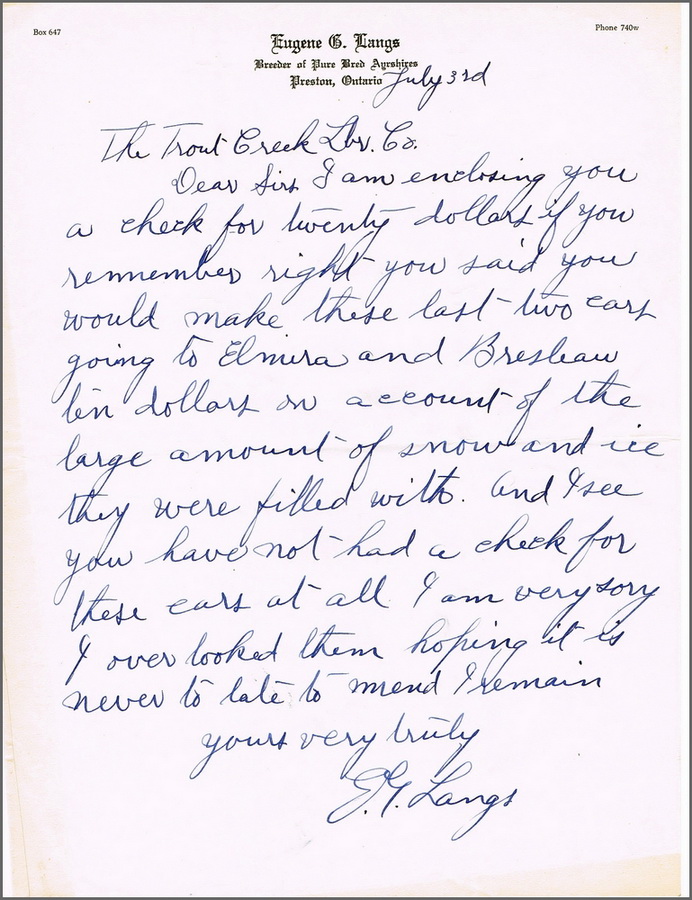 Box 647
Phone 740w
Eugene G. Langs
Breeder of Pure Bred Ayrshires
Preston, Ontario
July 3rd
The Trout Creek Lbr. Co.
Dear Sirs I am enclosing you
a check for twenty dollars if you
remember right you said you
would make these last two cars
going to Elmira and Breslau
ten dollars on account of the
large amount of snow and ice
they were filled with. And I see
you have not had a check for
these cars at all I am very sory
I over looked them hoping it is
never to late to mend I remain
yours very truly
E.G. Langs